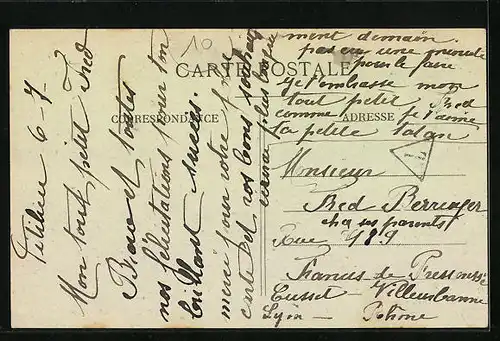 10
CARTE POSTALE
CORRESPONDANCE
ADRESSE
6-7
Mon tout petit Fred
Bravo et toutes
nos félicitations pour ton
brillant succès.
merci pour votre
carte et vos bons souhaits
ment demain.
pas eu une minute
pour le faire
je t'embrasse mon
tout petit Fred
comme je t'aime
ta petite tatan
T
Monsieur
Fred Berringer
chez ses parents
Rue 989
Francis de Pressensé
Cusset - Villeurbanne
Lyon - Rhône